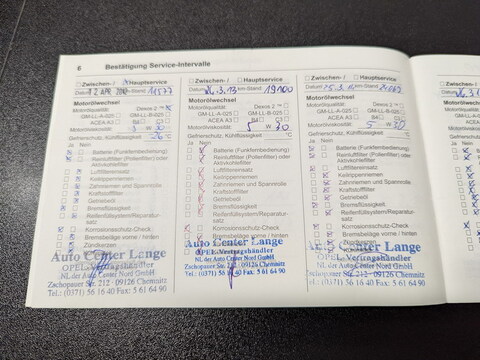 6 Bestätigung Service-Intervalle
Zwischen- / Hauptservice
Datum 12. APR. km-Stand 11577
Motorölwechsel
Motorölqualität: Dexos 2
GM-LL-A-025 GM-LL-B-025
ACEA A3
Motorviskosität: 5 W 30
Gefrierschutz, Kühlflüssigkeit: °C
Ja Nein
Batterie (Funkfernbedienung)
Reinluftfilter (Pollenfilter) oder
Aktivkohlefilter
Luftfiltereinsatz
Keilrippenriemen
Zahnriemen und Spannrolle
Kraftstofffilter
Getriebeöl
Bremsflüssigkeit
Reifenfüllsystem/Reparatur-
satz
Korrosionsschutz-Check
Bremsbeläge vorne / hinten
Zündkerzen
Auto Center Lange
OPEL-Vertragshändler
NL der Auto Center Nord GmbH
Zschopauer Str. 212 · 09126 Chemnitz
Tel.: (0371) 56 16 40 Fax: 5 61 64 90
Zwischen- / Hauptservice
Datum 26.3.13 km-Stand 19100
Motorölwechsel
Motorölqualität: Dexos 2
GM-LL-A-025 GM-LL-B-025
ACEA A3 B4 C3
Motorviskosität: 5 W 30
Gefrierschutz, Kühlflüssigkeit: °C
Ja Nein
Batterie (Funkfernbedienung)
Reinluftfilter (Pollenfilter) oder
Aktivkohlefilter
Luftfiltereinsatz
Keilrippenriemen
Zahnriemen und Spannrolle
Kraftstofffilter
Getriebeöl
Bremsflüssigkeit
Reifenfüllsystem/Reparatur-
satz
Korrosionsschutz-Check
Bremsbeläge vorne / hinten
Auto Center Lange
OPEL-Vertragshändler
NL der Auto Center Nord GmbH
Zschopauer Str. 212 · 09126 Chemnitz
Tel.: (0371) 56 16 40 Fax: 5 61 64 90
Zwischen- / Hauptservice
Datum km-Stand
Motorölwechsel
Motorölqualität: Dexos 2
GM-LL-A-025 GM-LL-B-025
ACEA A3 B4 C3
Motorviskosität: 5 W 30
Gefrierschutz, Kühlflüssigkeit: °C
Ja Nein
Batterie (Funkfernbedienung)
Reinluftfilter (Pollenfilter) oder
Aktivkohlefilter
Luftfiltereinsatz
Keilrippenriemen
Zahnriemen und Spannrolle
Kraftstofffilter
Getriebeöl
Bremsflüssigkeit
Reifenfüllsystem/Reparatur-
satz
Korrosionsschutz-Check
Bremsbeläge vorne / hinten
Zündkerzen
Auto Center Lange
OPEL-Vertragshändler
NL der Auto Center Nord GmbH
Zschopauer Str. 212 · 09126 Chemnitz
Tel.: (0371) 56 16 40 Fax: 5 61 64 90
Zwischen-
Datum
Motorölwechsel
Ja Nein